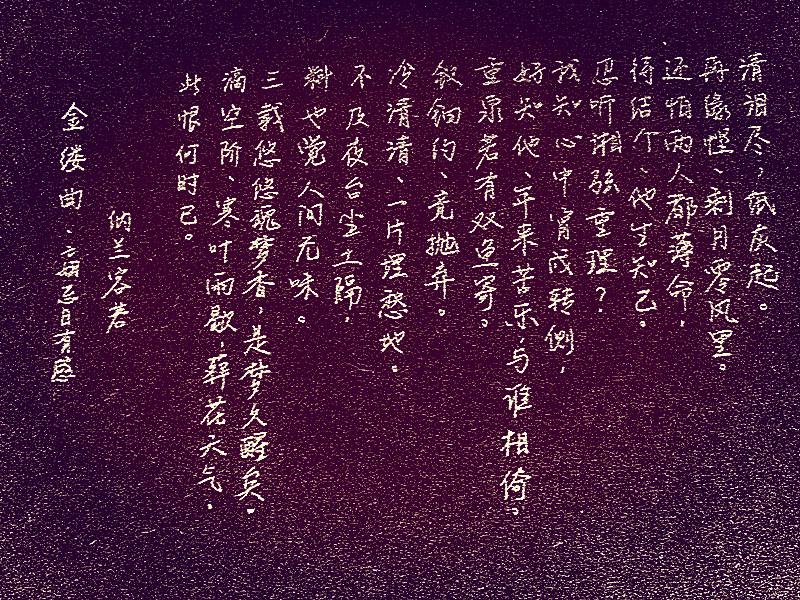 金缕曲、忌日有感
纳兰容若
此恨何时已。
滴空阶、寒叶雨歇，葬花天气。
三载悠悠魂梦香，是梦久醒矣。
料也觉人间无味。
不及夜台尘土隔，
冷清清、一片埋愁地。
钗钿约、竟抛弃。
重泉若有双鱼寄。
好知他、年来苦乐，与谁相倚。
我知心中宵成转侧，
忍听湘弦重理？
待结个、他生知己。
还怕两人都薄命，
再缘悭、剩月零风里。
清泪尽，纸灰起。